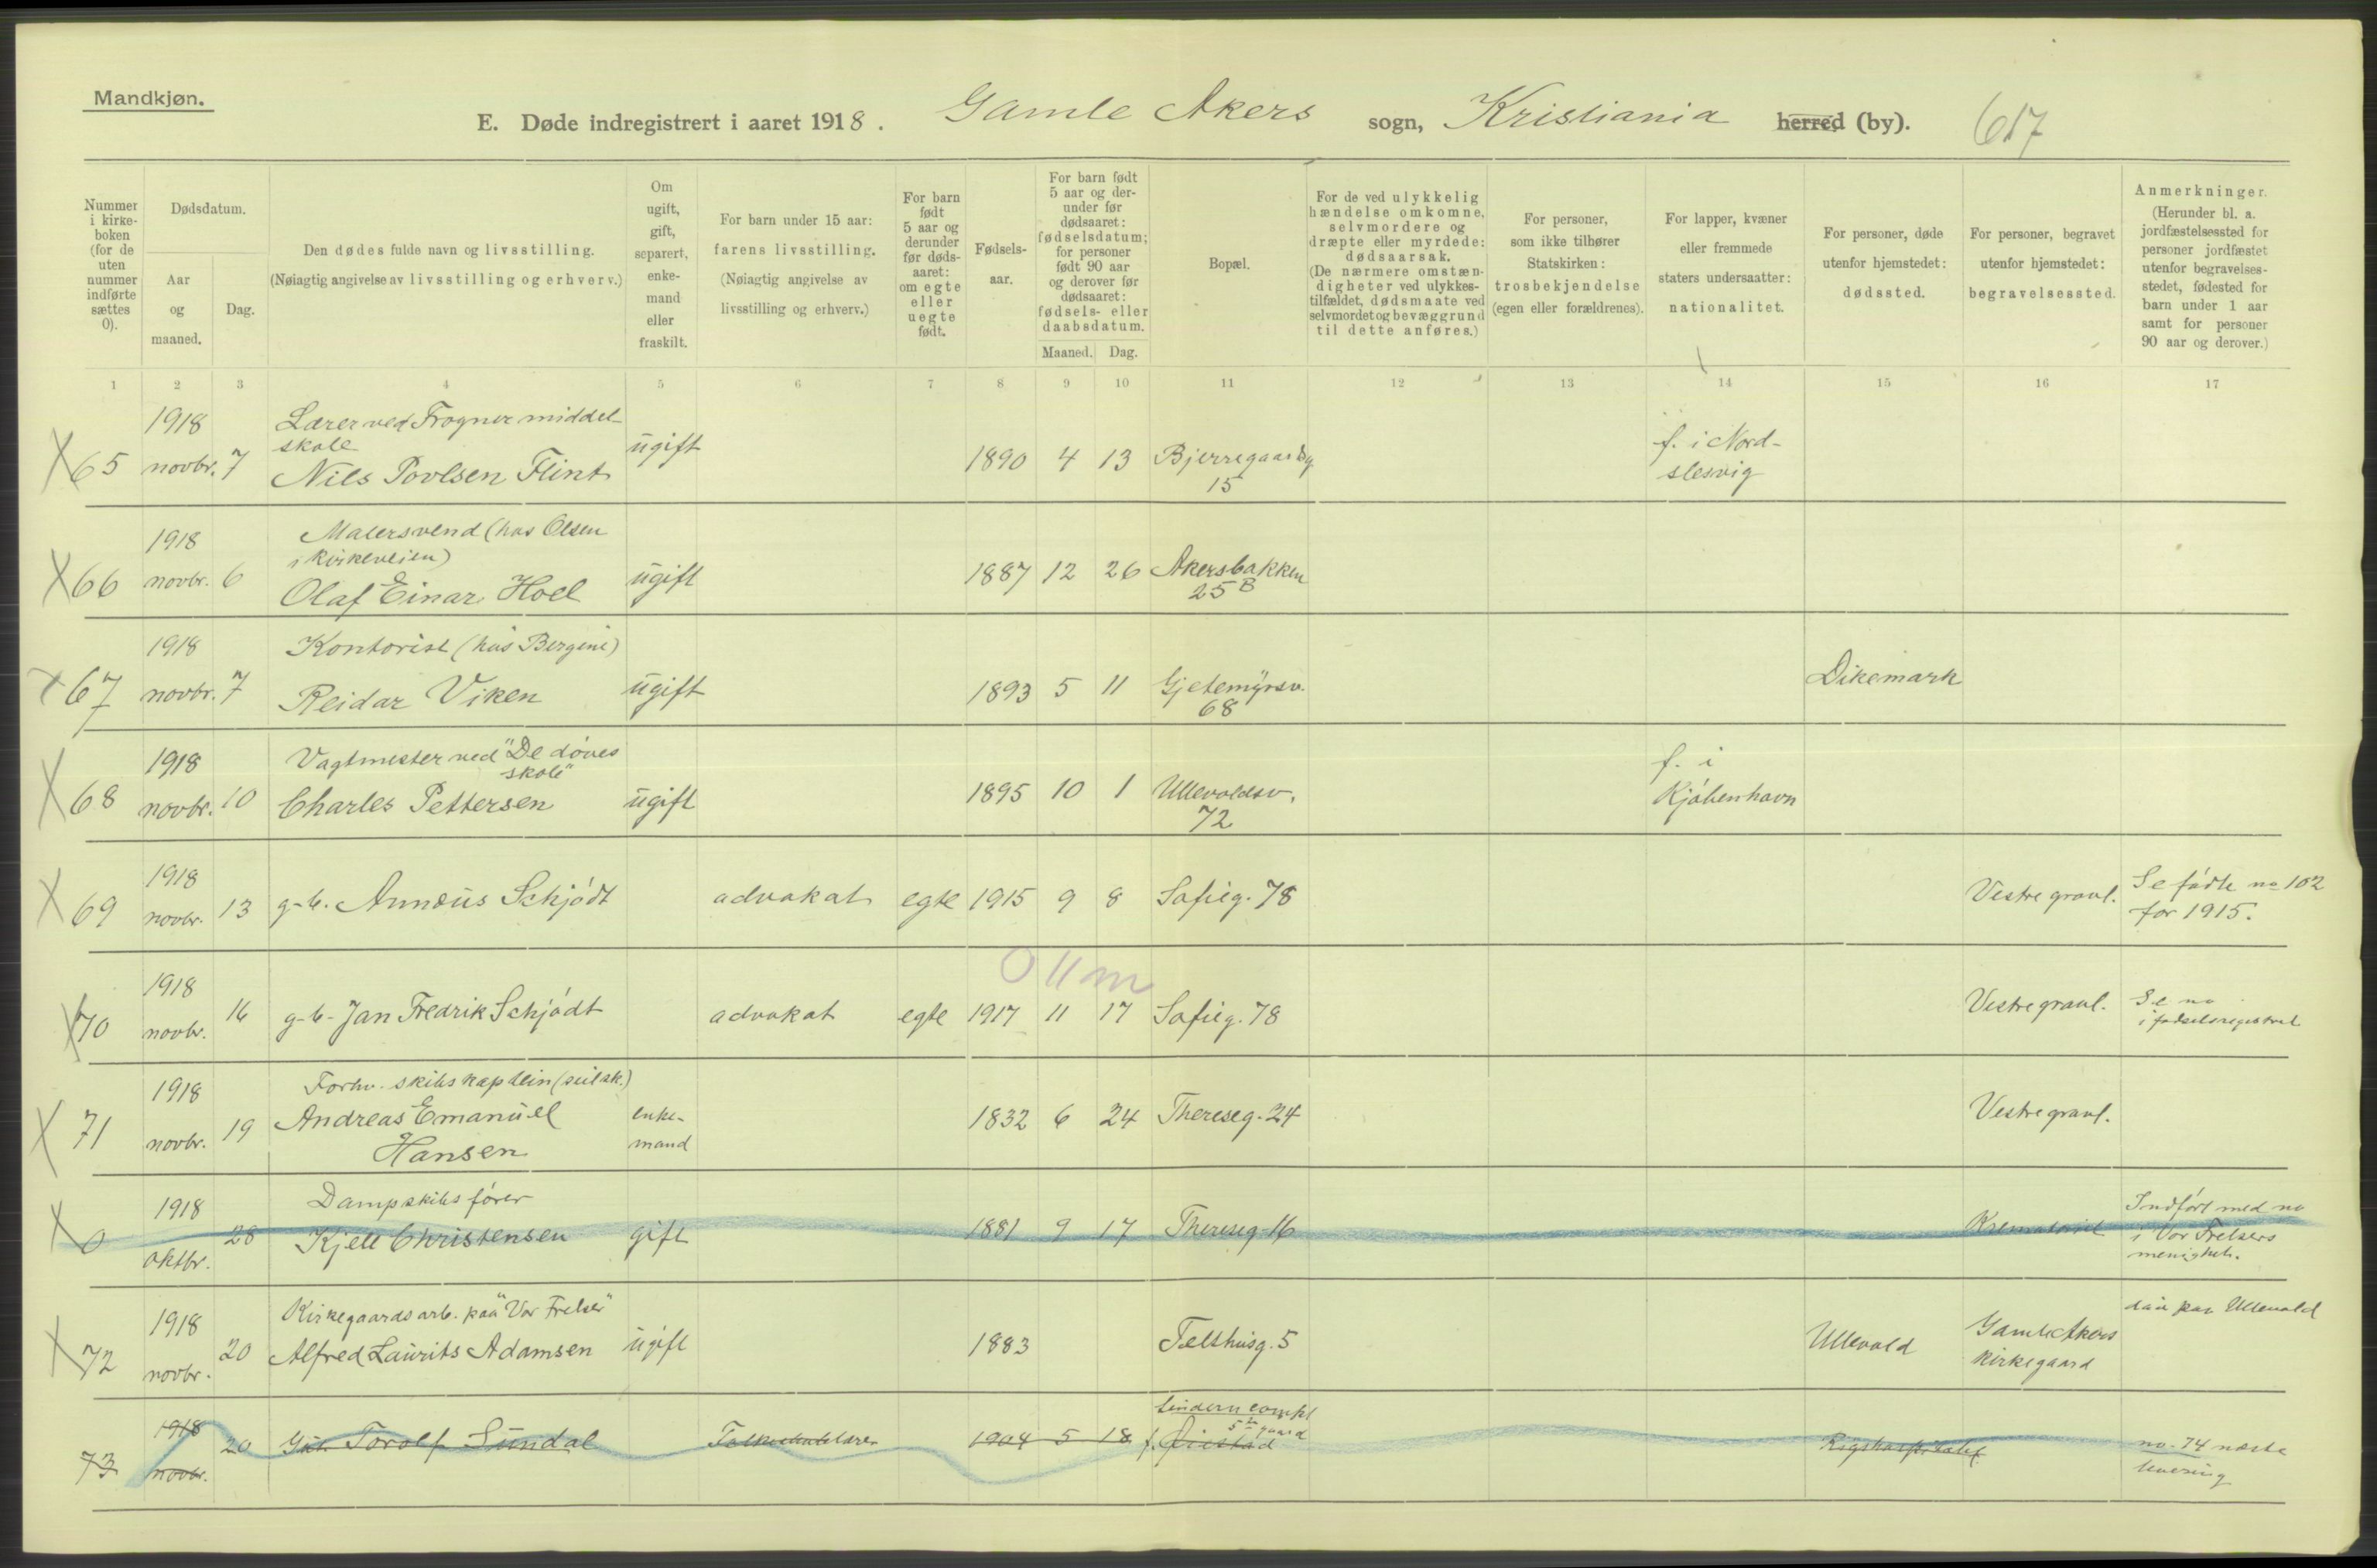 Mandkjøn.
E. Døde indregistrert i aaret 1918. Gamle Akers sogn, Kristiania herred (by). 617
Nummer i kirkeboken (for de uten nummer indførte sættes 0).
Dødsdatum.
Aar og maaned.
Dag.
Den dødes fulde navn og livsstilling.
(Nøiagtig angivelse av livsstilling og erhverv.)
Om ugift, gift, separert, enkemand eller fraskilt.
For barn under 15 aar: farens livsstilling.
(Nøiagtig angivelse av livsstilling og erhverv.)
For barn født 5 aar og derunder før dødsaaret: om egte eller uegte født.
Fødselsaar.
For barn født 5 aar og derunder før dødsaaret: fødselsdatum; for personer født 90 aar og derover før dødsaaret: fødsels- eller daabsdatum.
Maaned. Dag.
Bopæl.
For de ved ulykkelig hændelse omkomne, selvmordere og dræpte eller myrdede: dødsaarsak.
(De nærmere omstændigheter ved ulykkestilfældet, dødsmaate ved selvmordet og bevæggrund til dette anføres.)
For personer, som ikke tilhører Statskirken: trosbekjendelse (egen eller forældrenes).
For lapper, kvæner eller fremmede staters undersaatter: nationalitet.
For personer, døde utenfor hjemstedet: dødssted.
For personer, begravet utenfor hjemstedet: begravelsessted.
Anmerkninger.
(Herunder bl. a. jordfæstelsessted for personer jordfæstet utenfor begravelsesstedet, fødested for barn under 1 aar samt for personer 90 aar og derover.)
1 2 3 4 5 6 7 8 9 10 11 12 13 14 15 16 17
1918 Lærer ved Frogner middel-
skole
X 65 novbr. 7 Nils Povlsen Flint ugift 1890 4 13 Bjerregaardsg 15 f. i Nord-
slesvig
1918 Malersvend (hos Olsen
i Kirkeveien)
X 66 novbr. 6 Olaf Einar Hoel ugift 1887 12 26 Akersbakken
25 B
1918 Kontorist (hos Bergene)
X 67 novbr. 7 Reidar Viken ugift 1893 5 11 Gjetemyrsv. Dikemark
68
1918 Vagtmester ved "De døves
skole"
X 68 novbr. 10 Charles Pettersen ugift 1895 10 1 Ullevoldsv. f. i
72 Kjøbenhavn
1918
X 69 novbr. 13 g-b. Annæus Schjødt advokat egte 1915 9 8 Sofieg. 78 Vestre gravl. Se fødte no 102
for 1915.
0 11 m
1918
X 70 novbr. 16 g-b- Jan Fredrik Schjødt advokat egte 1917 11 17 Sofieg. 78 Vestre gravl. Se no
i fødselsregistret
1918 Forhv. skibskaptein (seilsk.)
X 71 novbr. 19 Andreas Emanuel enke-
mand 1832 6 24 Thereseg. 24 Vestre gravl.
Hansen
1918 Dampskibsfører
X 0 oktbr. 28 Kjell Christensen gift 1881 9 17 Thereseg 16 Krematoriet Indført med no
i Vor Frelsers
menighet.
1918 Kirkegaardsarb. paa "Vor Frelser"
X 72 novbr. 20 Alfred Laurits Adamsen ugift 1883 Telthusg. 5 Ullevold Gamle Akers
kirkegaard
paa Ullevold
1918
73 novbr. 20 Gut. Torolf Sundal Folkeskolelærer 1904 5 18 no. 74 næste
levering
Rigshospitalet